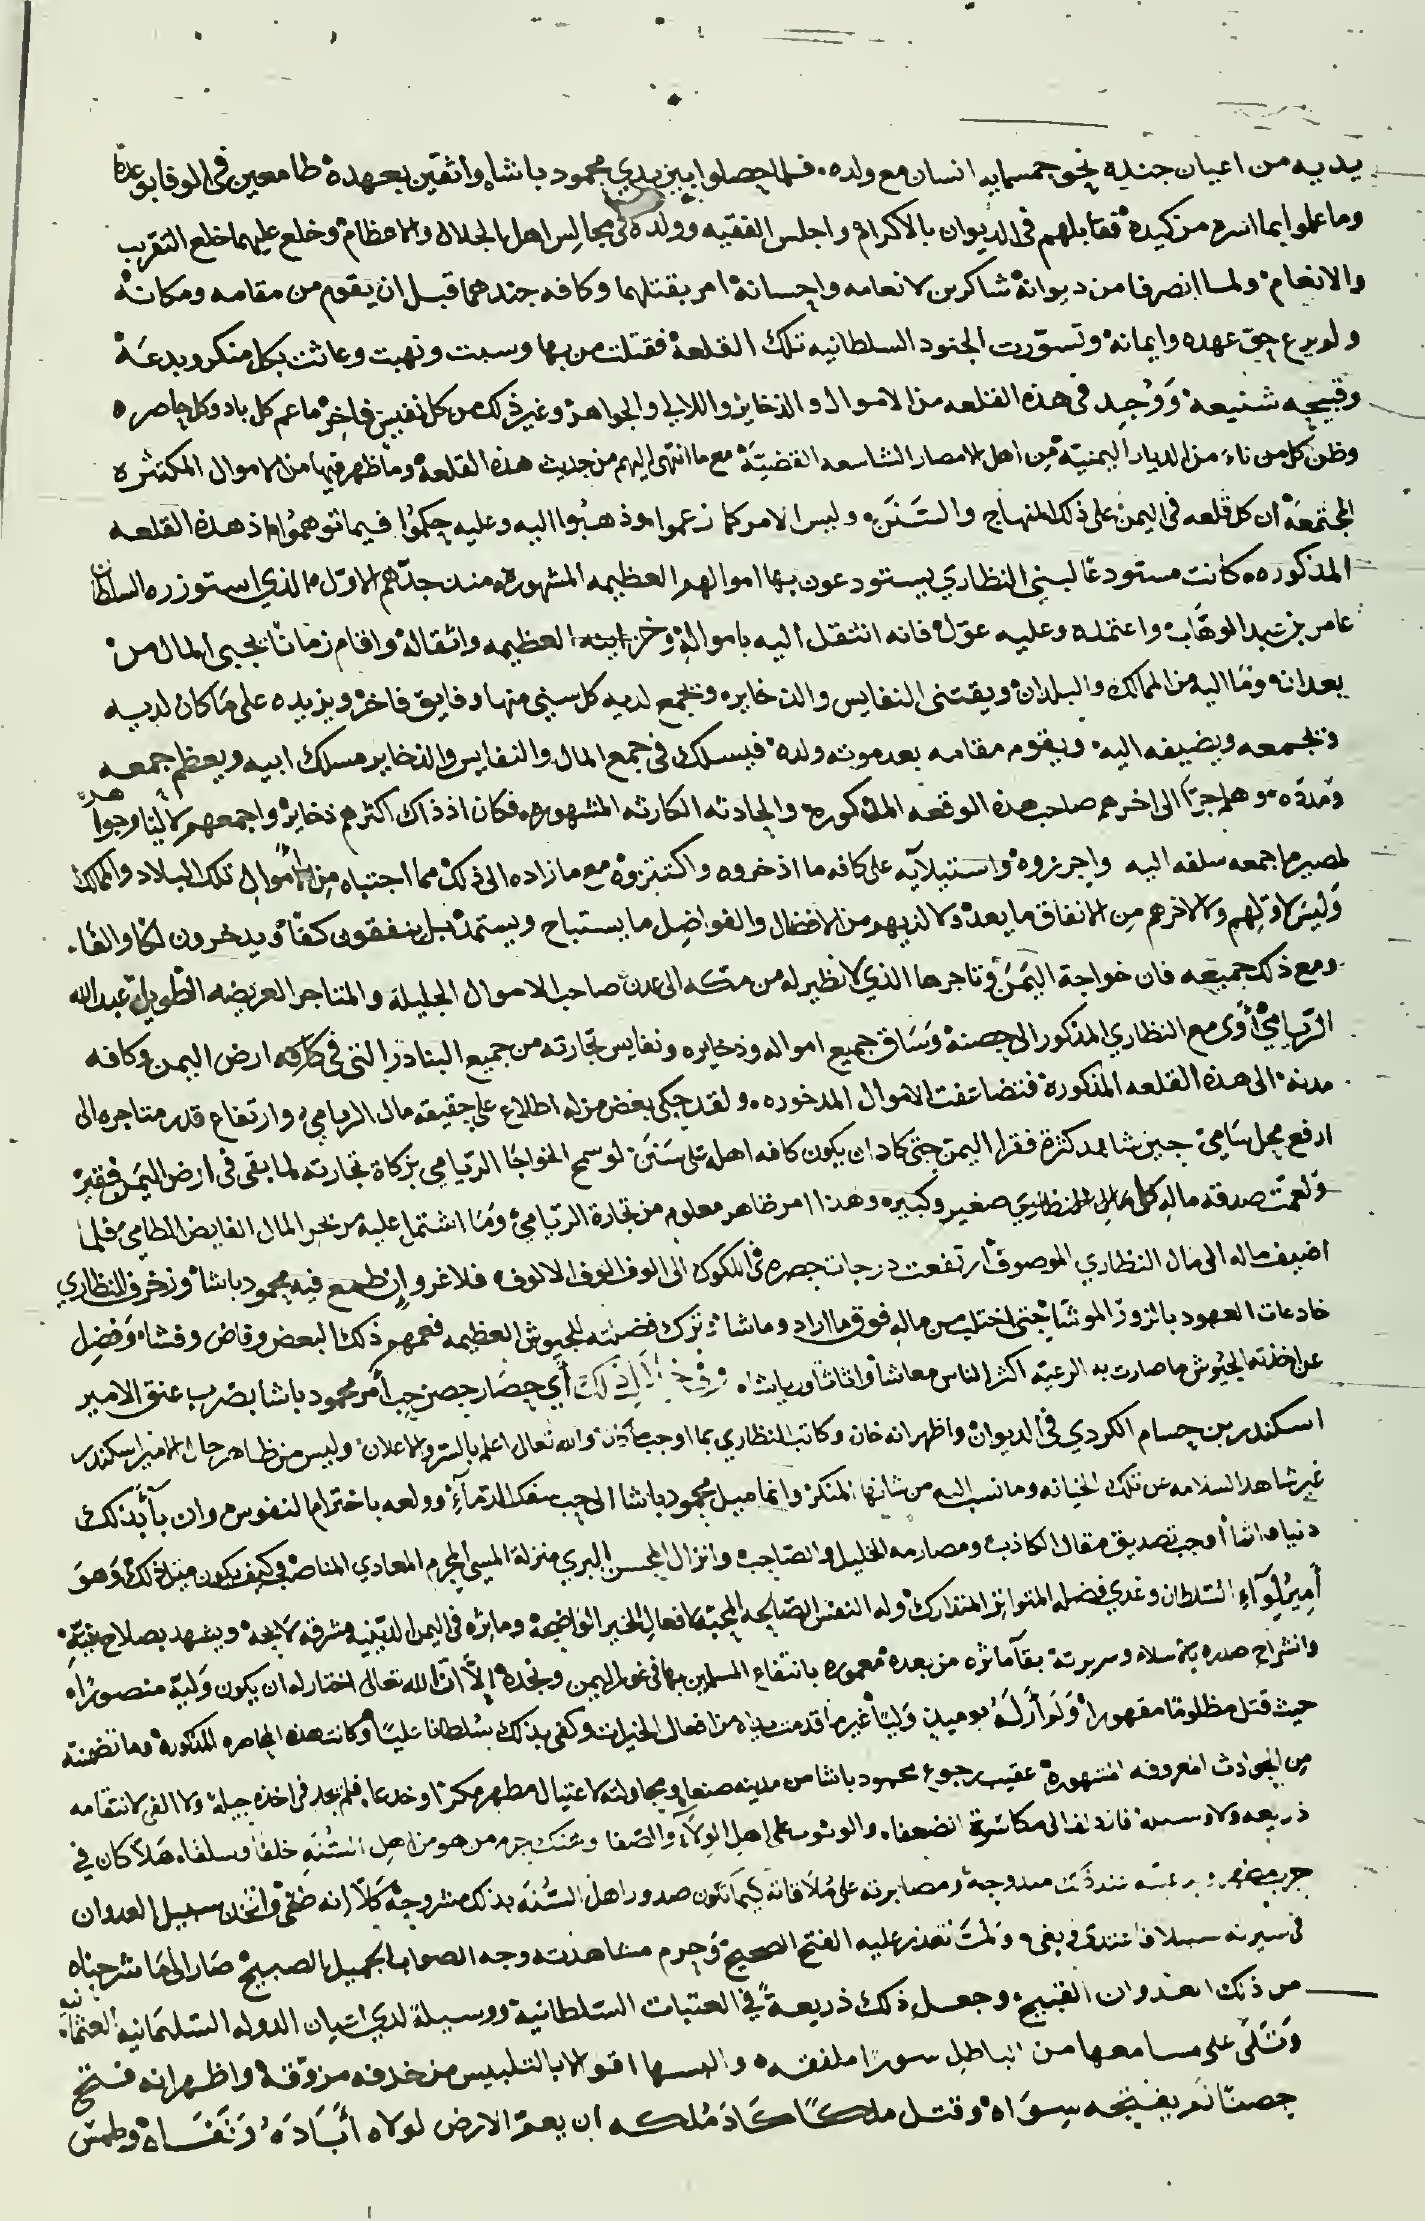 يديه من اعيان جنده نحو خمسمايه انسان مع ولده، فلما حصلوا بين يدي محمود باشا واثقين بعهده طامعين في الوفا بوعده
وما علموا بما اسره من كيده فقابلهم في الديوان بالاكرام واجلس الفقيه وولده في مجالس اهل الجلال والاعظام وخلع عليهما خلع التقريب
والانعام ولما انصرفا من ديوانه شاكرين لانعامه واحسانه امر بقتلهما وكافه جندهما قبل ان يقوم من مقامه ومكانه
ولم يرع حق عهده وايمانه وتسورت الجنود السلطانيه تلك القلعة فقتلت من بها وسبت ونهبت وعاثت بكل منكر وبدعة
وقبيحه شنيعه وَوُجِد في هذه القلعه من الاموال والذخاير واللالي والجواهر وغير ذلك من كل نفيس فاخر ما عم كل باد وكل حاضره
وظن كل من ناء من الديار اليمنيّة من اهل الامصار الشاسعه القضيّة مع ما انتهى اليهم من حديث هذه القلعة وما ظهر فيها من الاموال المكتثره
المجتمعة ان كل قلعه في اليمن على ذلك المنهاج والسَنَن وليس الامر كما زعموا وذهبوا اليه وعليه حكموا فيما توهموا اذ هذه القلعه
المذكوره كانت مستودعا لبني النظاري يستودعون بها اموالهم العظيمه المشهوره منذ جدّهم الاوّل الذي استوزره السلطان
عامر بن عبد الوهاب واعتمله وعليه عوّل فانه انتقل اليه بامواله وخزاينه العظيمه واثقاله واقام زمانا يجبي المال من
بعدانه وما اليه من الممالك والبلدان ويقتني النفايس والذخايره ويجمع لديه كل سني منها وفايق فاخر ويزيده على ما كان لديه
ويجمعه ويضيفه اليه ويقوم مقامه بعد موته ولده فيسلك في جمع المال والنفايس والذخاير مسلك ابيه ويعظم جمعه
مدّه وهلم جرّا الى اخرهم صاحب هذه الوقعه المذكوره والحادثه الكارثه المشهوره فكان اذ ذاك اكثرهم ذخاير واجمعهم
لمصير ما جمعه سلفه اليه واحرزوه واستيلآيه على كافه ما اذخروه واكتنزوه مع ما زاده الى ذلك مما اجتباه من اموال تلك البلاد والممالك
وليس لاوّلهم ولا لاخرهم من الانفاق ما يعد ولا لديهم من الافضال والفواضل ما يستباح ويستمد بل ينفقون كفًا ويدخرون الفا
ومع ذلك جميعه فان خواجة اليمن وتاجرها الذي لا نظير له من مكه الى عدن صاحب الاموال الجليلة والمتاجر العريضه الطويله عبد الله
الريامي أوى مع النظاري المذكور الى حصنه وَسَاق جميع امواله وذخايره ونفايس تجارته من جميع البنادر التي في كافه ارض اليمن وكافه
مدنه الى هذه القلعه المذكورة فتضاعفت الاموال المدخوره ولقد حكى بعض من له اطلاع على حقيقه مال الريامي وارتفاع قدر متاجره الى
ارفع محل سَامي حين شاهد كثرة فقرا اليمن حتى كاد ان يكون كافه اهله على سَنَن لو سمح الخواجا الريامي بزكاة تجارته لما بقى في ارض اليمن فقير
ولعمّت صدقة ماله كل صغير وكبيره وهذا امر ظاهر معلوم من تجارة الريامي وما اشتمل عليه من بحر المال الفايض الطامي فلما
اضيف ماله الى مال النظاري الموصوف ارتفعت درجات حصره في اللكوك الى الوف الوف الالوف، فلا غرو ان طمع فيه محمود باشا وزخرف للنظاري
خادعات العهود بالزور الموشّا حتى اختلب من ماله فوق ما اراد وما شا وترك فضلته للجيوش العظيمه فعمهم ذلك البعض وفاض وفشا وفضل
عن اخذته الجيوش ما صارت به الرعيّه اكثر الناس معاشا واثاثا ورياشاه وفي خلال ذلك أي حصار حصن حب أمر محمود باشا بضرب عنق الامير
اسكندر بن حسام الكردي في الديوان واظهر انه خان وكاتب النظاري بما اوجب ما كان والله تعالى اعلم بالسر والاعلان وليس من ظاهر حال الامير اسكندر
غير شاهد السلامه عن تلك الخيانه وما نسب اليه من شانها المنكر وانما ميل محمود باشا الى حب سفك الدمآء وولعه باخترام النفوس وان بآء بذلك
أوجب تصديق مقال الكاذب ومصارمه الخليل والصاحب وانزال المحسن البري منزلة المسي المجرم المعادي المناصب وكيف يكون مثل ذلك وَهوَ
أمير لوآء السلطان وغذي فضله المتواتر المتدارك وله النفس الصالحه وافعال الخير الواضحة وماثره في اليمن الدينيه مشرقه لايحه ويشهد بصلاح نيته
وانشراح صدره بالاسلام وسريرته بقآء ماثره من بعده معموره بانتفاع المسلمين بها في غور اليمن ونجده إلاّ انّ الله تعالى اختار له ان يكون وليّه منصورا
حيث قتل مظلومًا مقهورا ولم أر له يوميذ وليًا غير ما قدمت يداه من افعال الخيرات وكفى بذلك سُلطانا عليّا وكانت هذه المحاصره المذكورة وما تضمنته
من الحوادث المعروفه المشهورة عقيب رجوع محمود باشا من مدينه صنعا ومحاولته لاغتيال مطهر مكرًا وخدعا فلم يجد في اخذه حيلة ولا الفى لانتقامه
ذريعه ولا وسيله فازدلف الى مكاشرة الضعفاء والوثوب على اهل الولآء والصفا وهتك حرم من هو من اهل السُنّه خلفا وسلفا هَلاّ كان في
حرب مطهر ومصابرته على مُلاقاته كيما تكون صدور اهل السُنّه بذلك مشروحه كَلاّ انه طغى واتّخذ سبيل العدوان
في سيرته سبيلا فاعتدى وبغى ولمّا تعذر عليه الفتح الصحيح وَحرم مشاهدة وجه الصواب الجميل الصبيح صَار الى ما شرحناه
من ذلك العدوان القبيح وجعل ذلك ذريعةً في العتبات السلطانية ووسيلة لدى اعيان الدوله السليمانيه العثمانيه
وَتَلى على مسامعها من الباطل سورًا ملفقه والبسها اقوالا بالتلبيس مزخرفه مزوّقه واظهر انه فتح
حصنًا لم يفتحه سِوَاه وقتل ملكًا كَادَ مُلكه ان يعمّ الارض لولاه أبَادَهُ وَنَفَاه وطمس